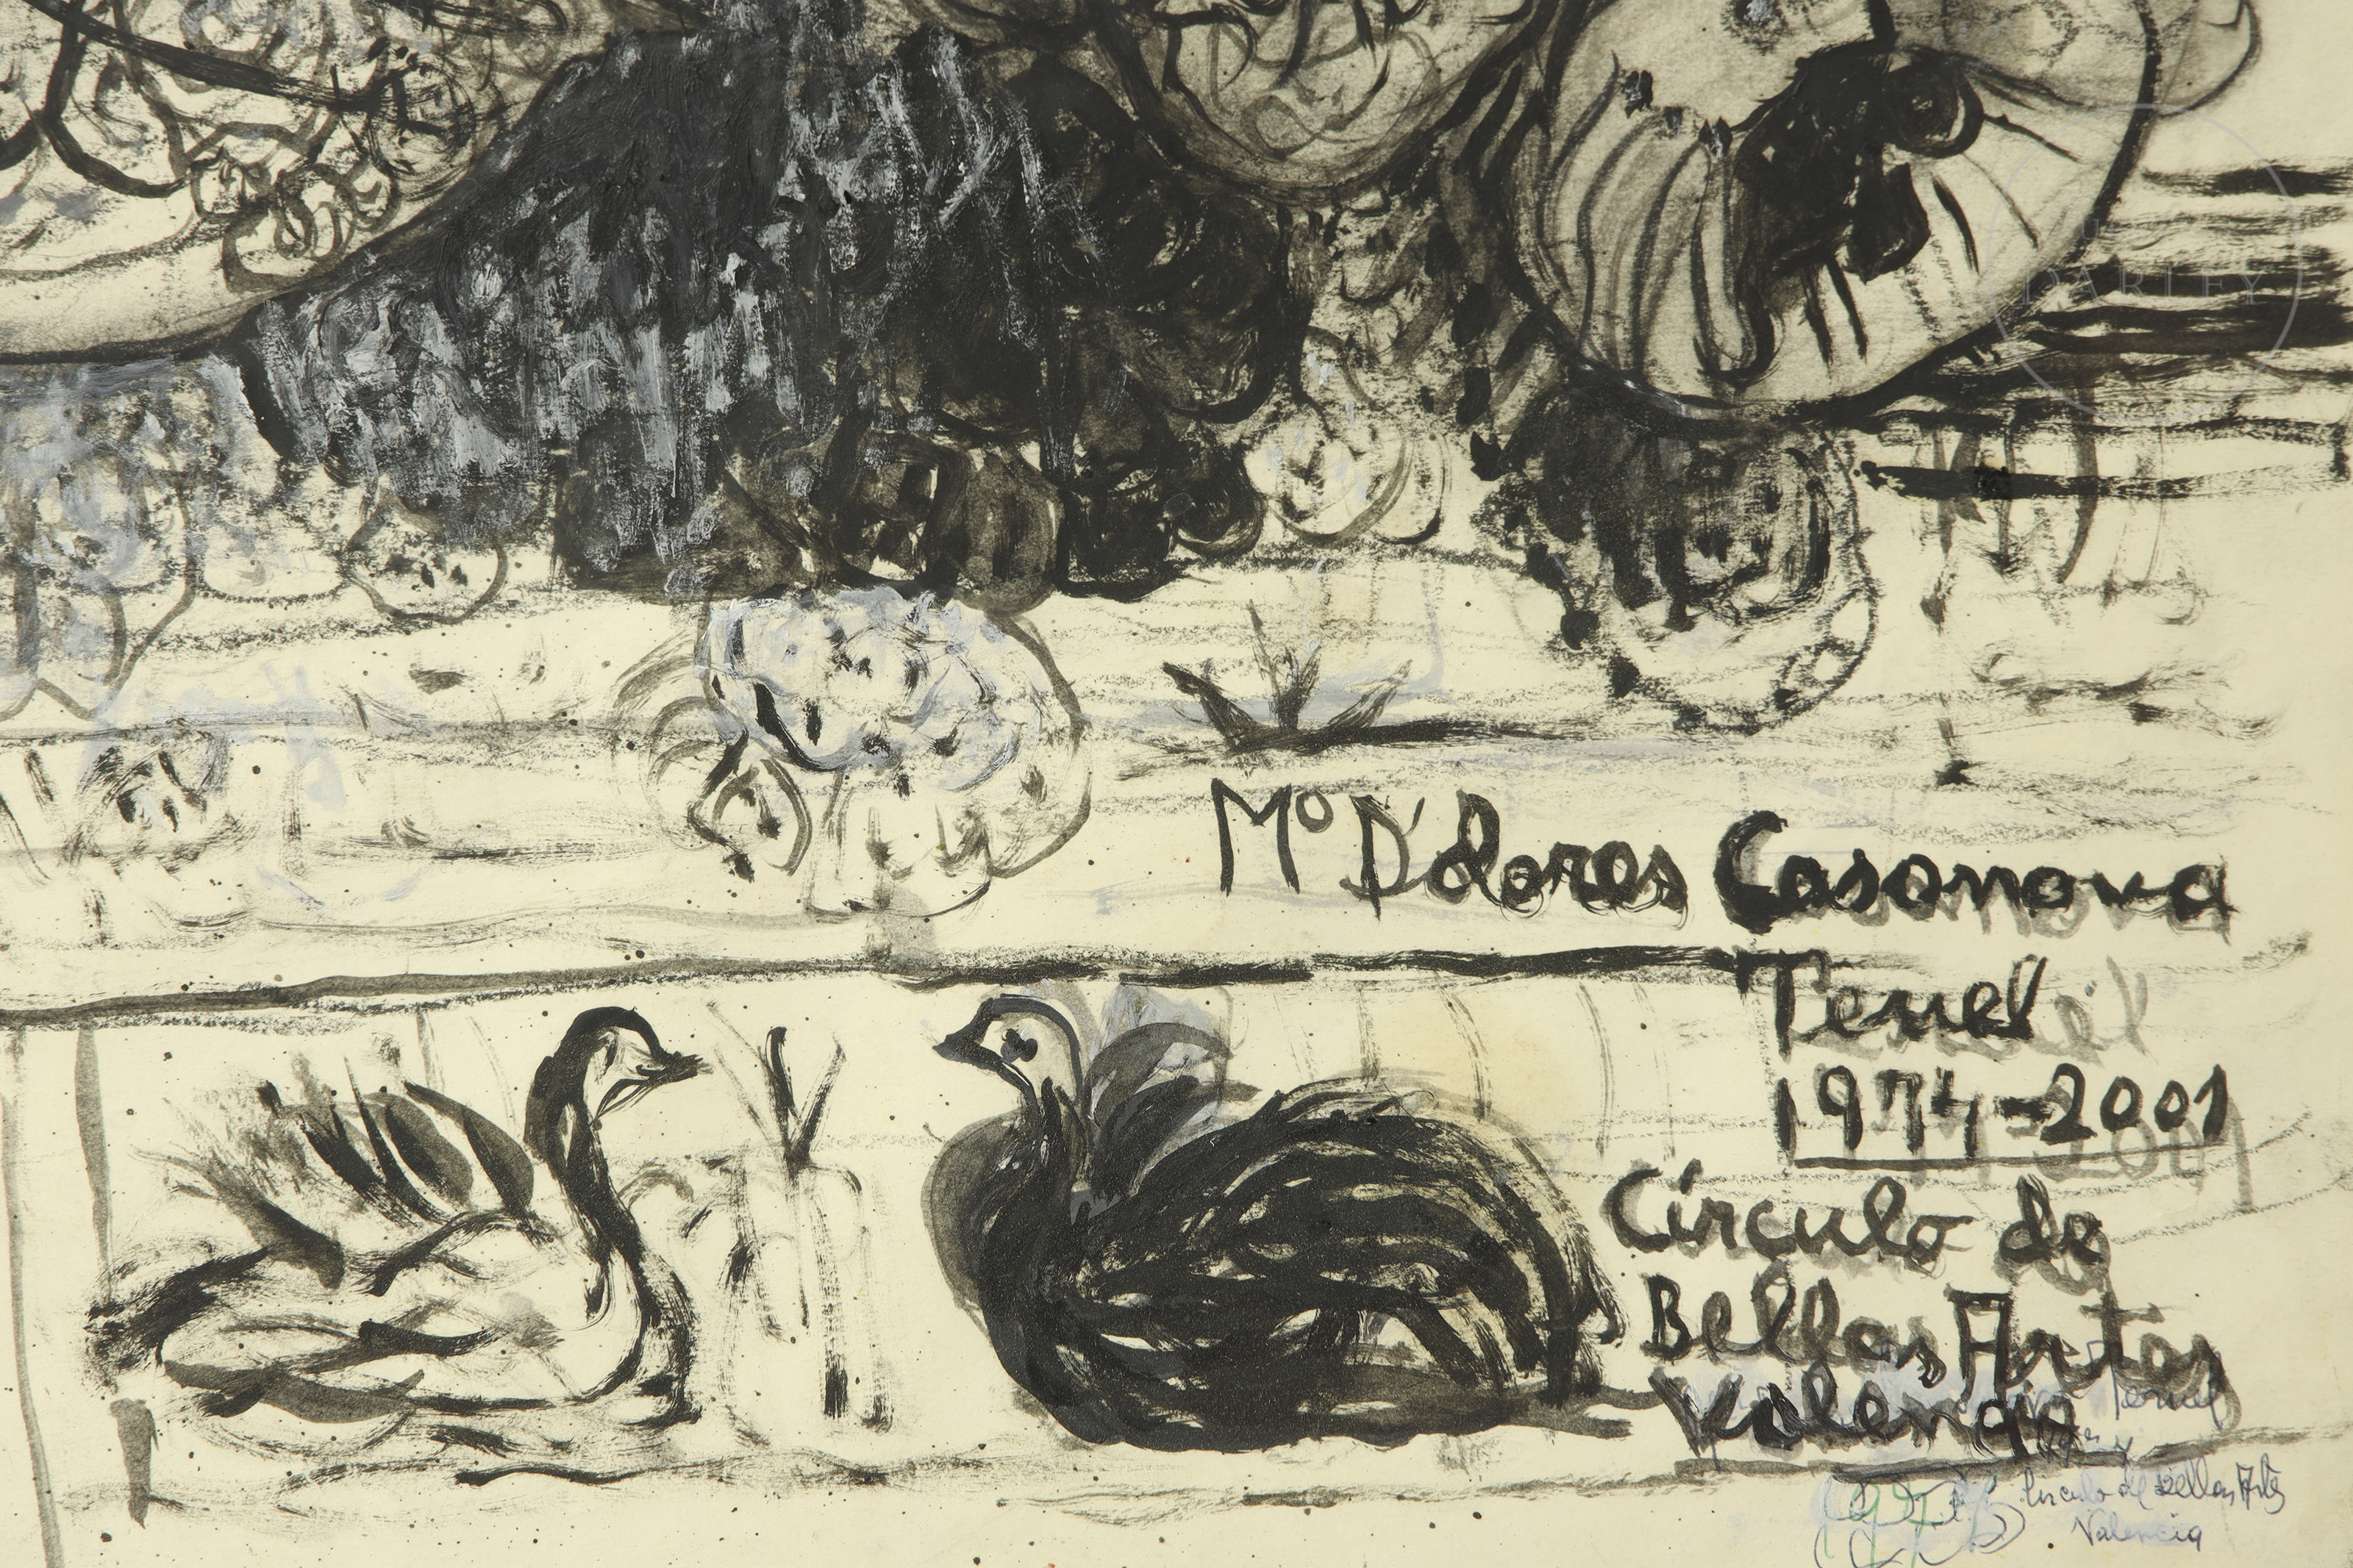 DARLEY
Mº D'olores Casanova
Teruel
1974-2001
Círculo de
Bellas Artes
Valencia
Teruel
Circulo de Bellas Artes
Valencia